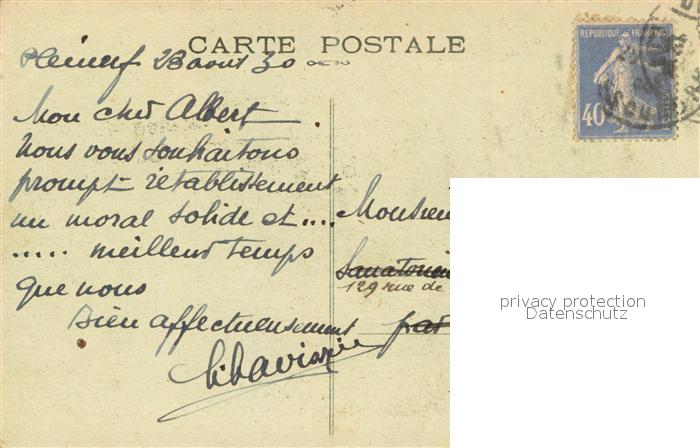 CARTE POSTALE
Pléneuf 23 aout 30
RÉPUBLIQUE FRANÇAISE
40
Mon cher Albert
Nous vous souhaitons
prompt rétablissement
un moral solide et ....
..... meilleur temps
que nous
Bien affectueusement
Monsieur
Sanatorium
129 rue de
par
privacy protection
Datenschutz